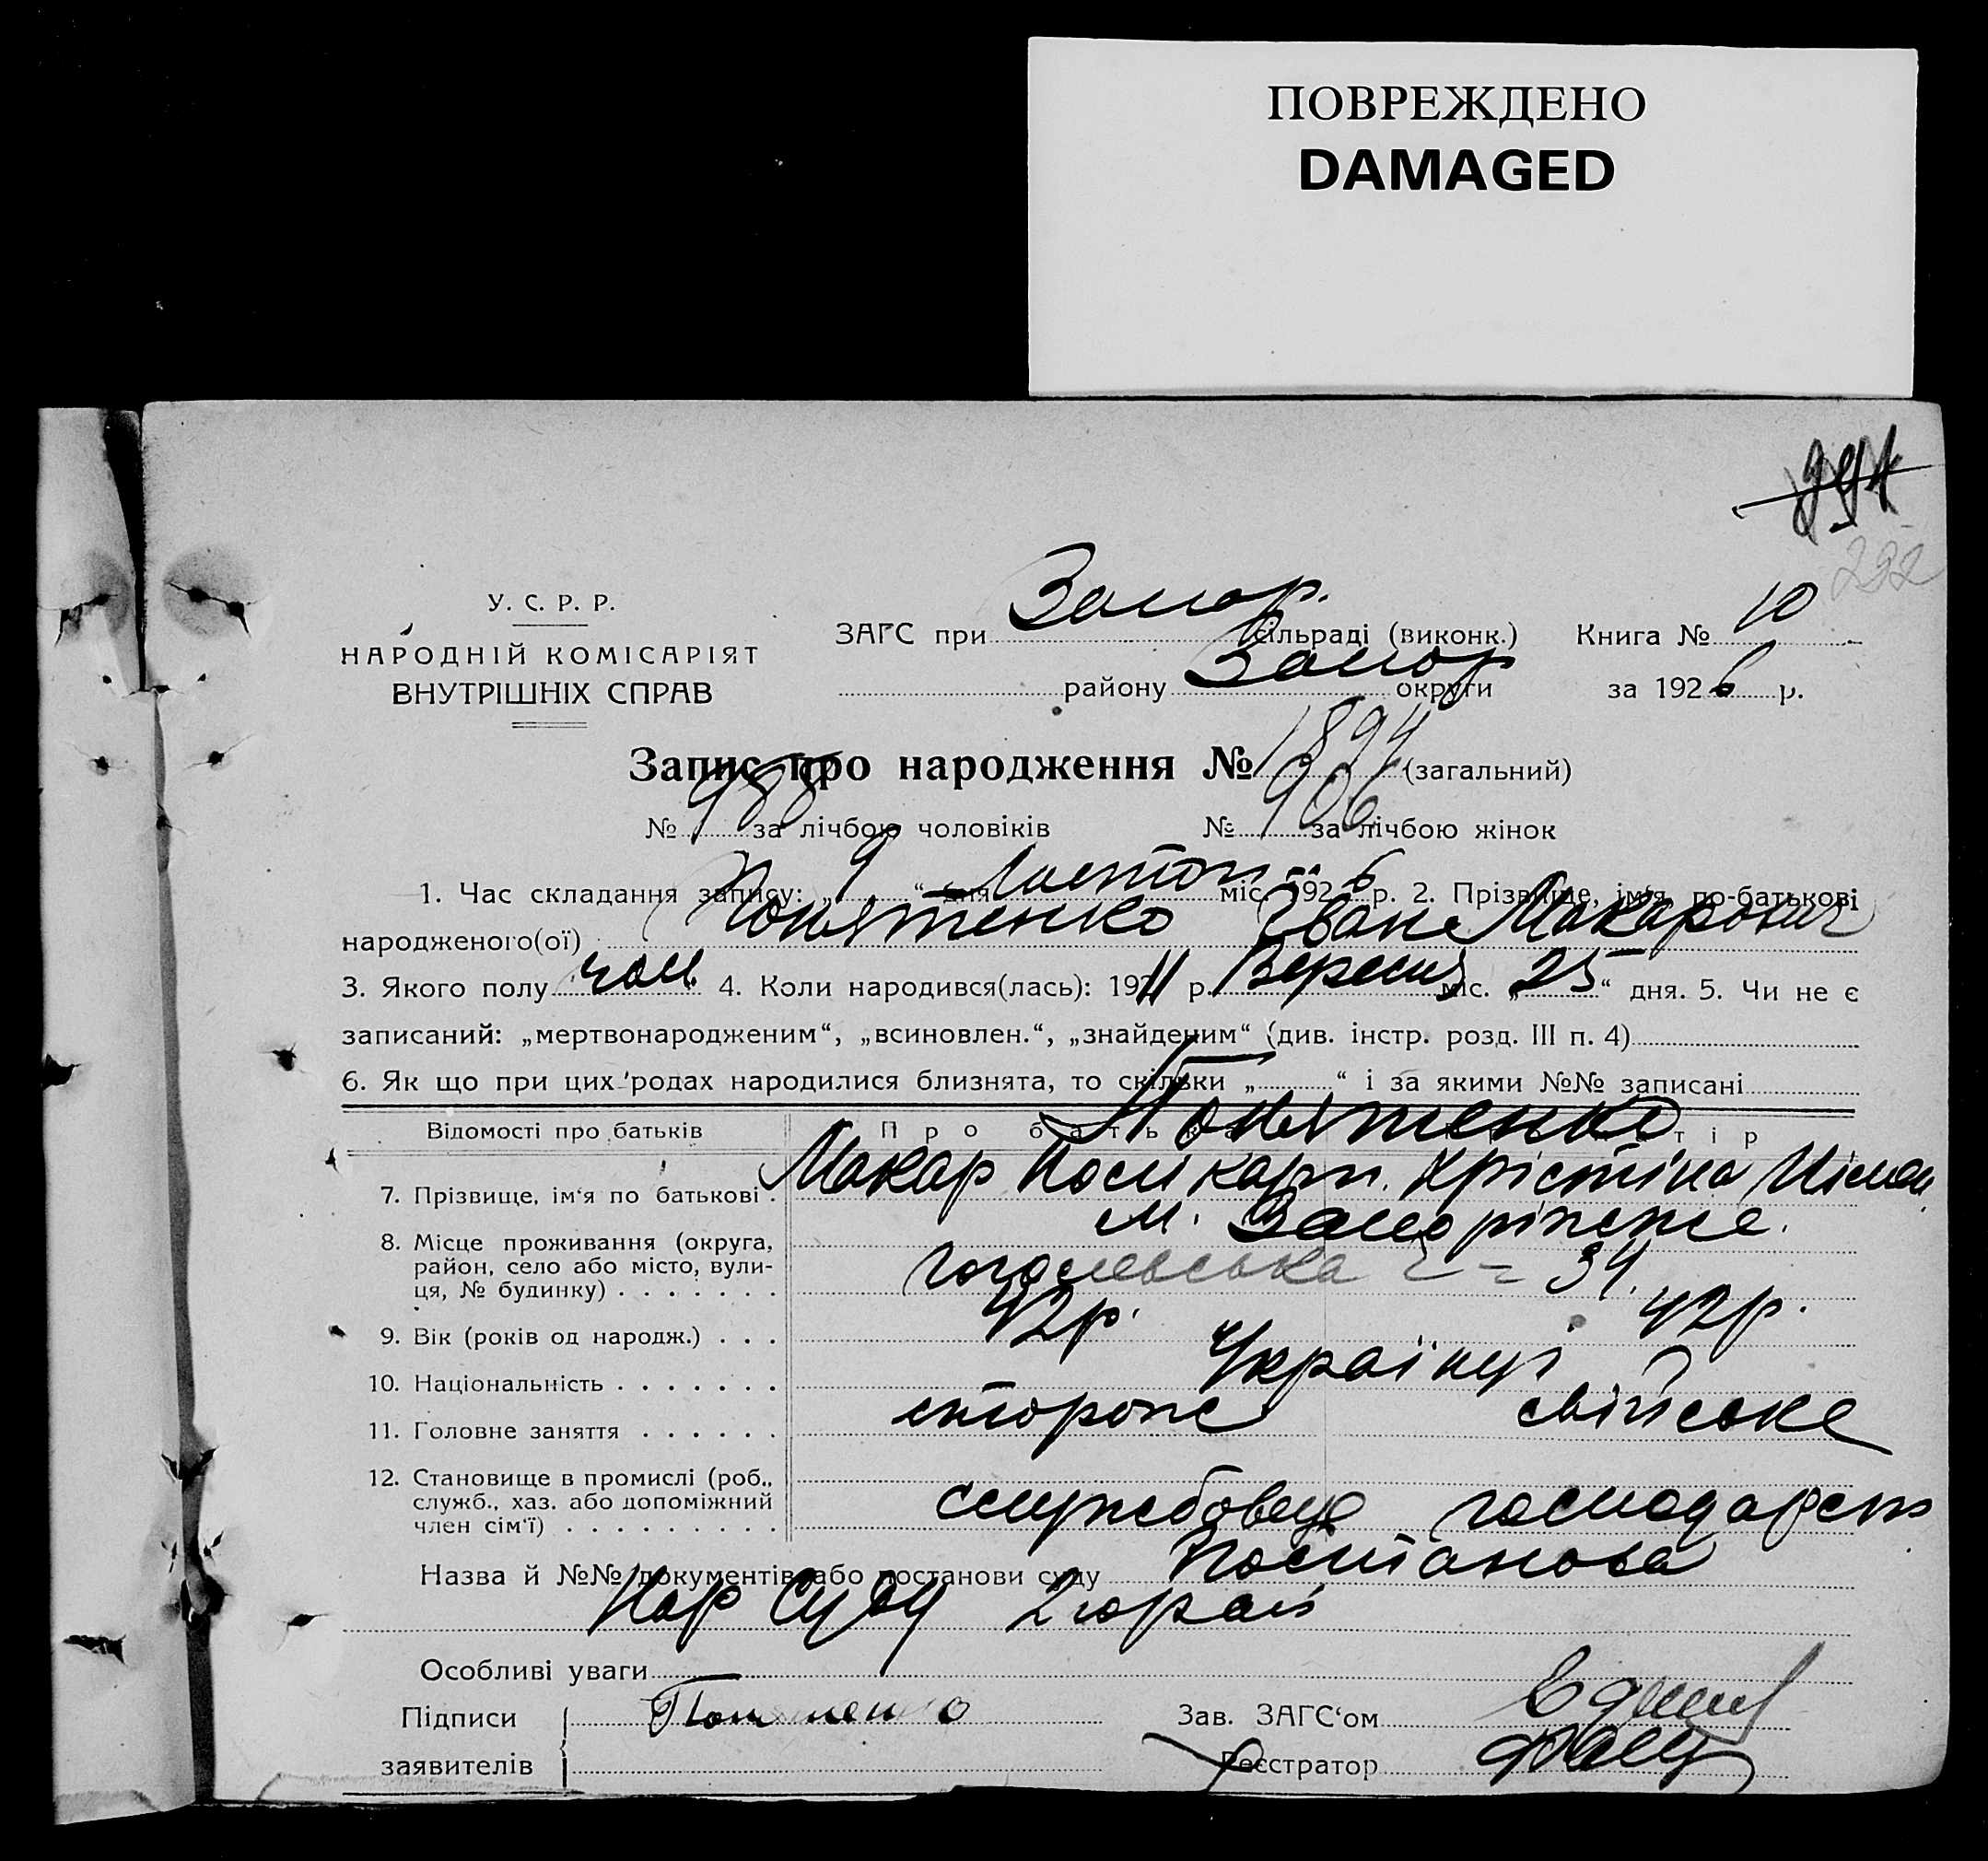 ПОВРЕЖДЕНО
DAMAGED
994
292
У. С. Р. Р.
НАРОДНІЙ КОМІСАРІЯТ
ВНУТРІШНІХ СПРАВ
ЗАГС при Запор. сільраді (виконк.) Книга № 10
району Запор округи за 1926 р.
Запис про народження № 1894 (загальний)
№ 988 за лічбою чоловіків № 906 за лічбою жінок
1. Час складання запису: „ 9 “ дня Листоп міс. 1926 р. 2. Прізвище, ім‘я, по-батькові
народженого(ої) Понятенко Іван Макарович
3. Якого полу чол. 4. Коли народився(лась): 1911 р. Вересня міс. „ 25 “ дня. 5. Чи не є
записаний: „мертвонародженим“, „всиновлен.“, „знайденим“ (див. інстр. розд. III п. 4)
6. Як що при цих родах народилися близнята, то скільки „ “ і за якими №№ записані
Відомості про батьків Про батька
Понятенко
7. Прізвище, ім‘я по батькові. Макар Полікарп. Хрістіна
8. Місце проживання (округа, м. Запоріжже.
район, село або місто, вули-
ця, № будинку) Гоголевська 34.
9. Вік (років од народж.) 42р. 42р.
10. Національність Українці
11. Головне заняття сторож свійське
12. Становище в промислі (роб.,
служб., хаз. або допоміжний
член сім‘ї) службовець господарств
Назва й №№ документів або постанови суду Постанова
Нар Суду 2
Особливі уваги
Підписи Понятенко Зав. ЗАГС‘ом
заявителів Реєстратор